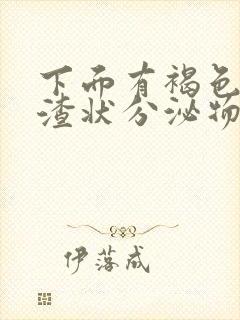 下而有褐色
渣状分泌物
伊落成